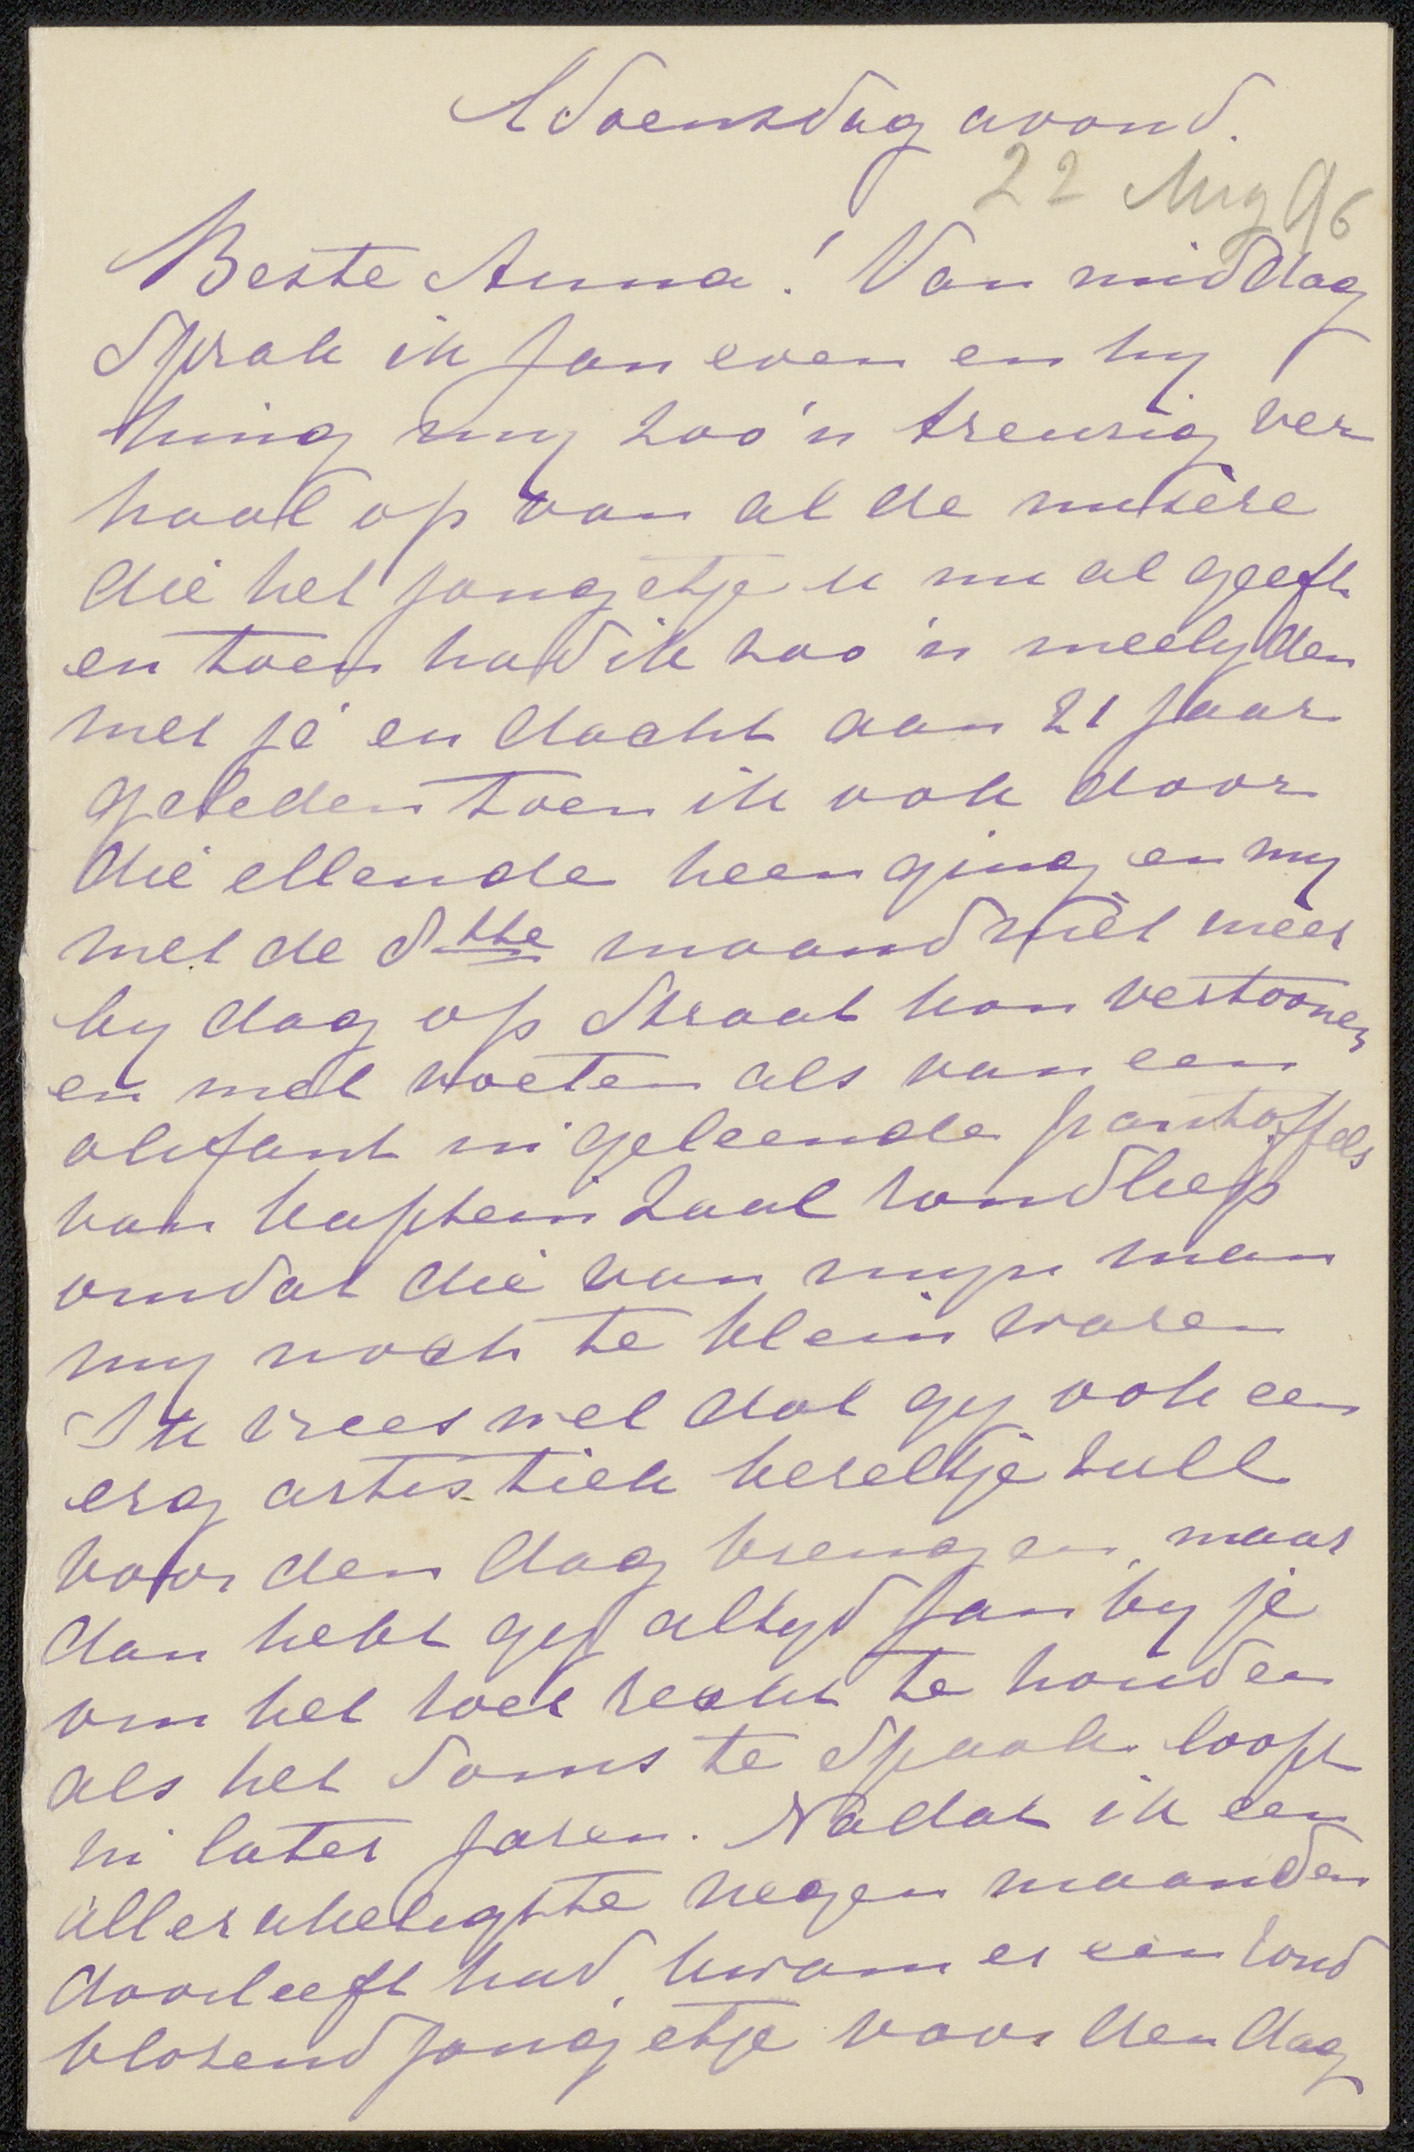 Woensdag avond.
22 Aug 96
Beste Anna! Van middag
sprak ik Jan even en hy
hing my zoo'n treurig ver
haal op van al de misère
die het jongetje u nu al geeft
en toen had ik zoo'n meelyden
met je en dacht aan 21 jaar
geleden toen ik ook door
die ellende heen ging en my
met de 5de maand niet meer
by dag op straat kon vertoonen
en met voeten als van een
olifant in geleende pantoffels
van kaptein Zaal rondliep
omdat die van myn man
my noch te klein waren
Ik vrees wel dat gy ook een
erg artistiek kereltje zult
voor den dag brengen, maar
dan hebt gy altyd Jan by je
om het roer recht te houden
als het soms te spaak loopt
in later jaren. Nadat ik een
allerakeligste negen maanden
doorleeft had, kwam er een rond
blozend jongetje voor den dag